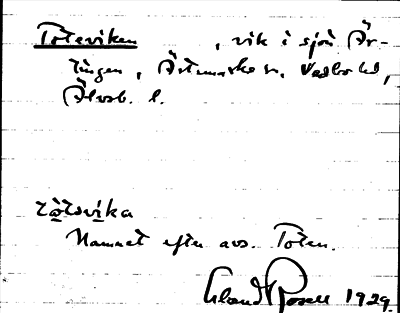 Toteviken , vik i sjön Är-
tingen, Ärtemarks sn, Vedbo hd,
Älvsb. l.
tò̤tsvi̤ka
Namnet efter avs. Toten.
Erland Rosell 1929.